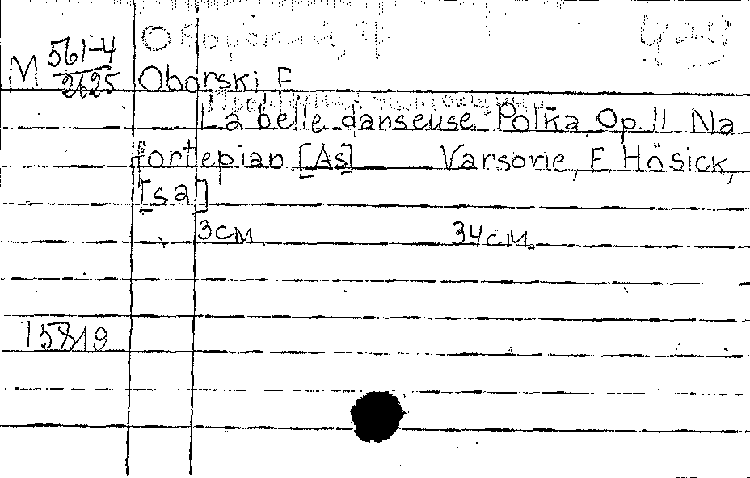 M 561-4
2625
Oborski F
La belle danseuse Polka Op 11 Na
fortepian [As] Varsovie, F Hösick,
[s a]
3 см 34 см.
15819